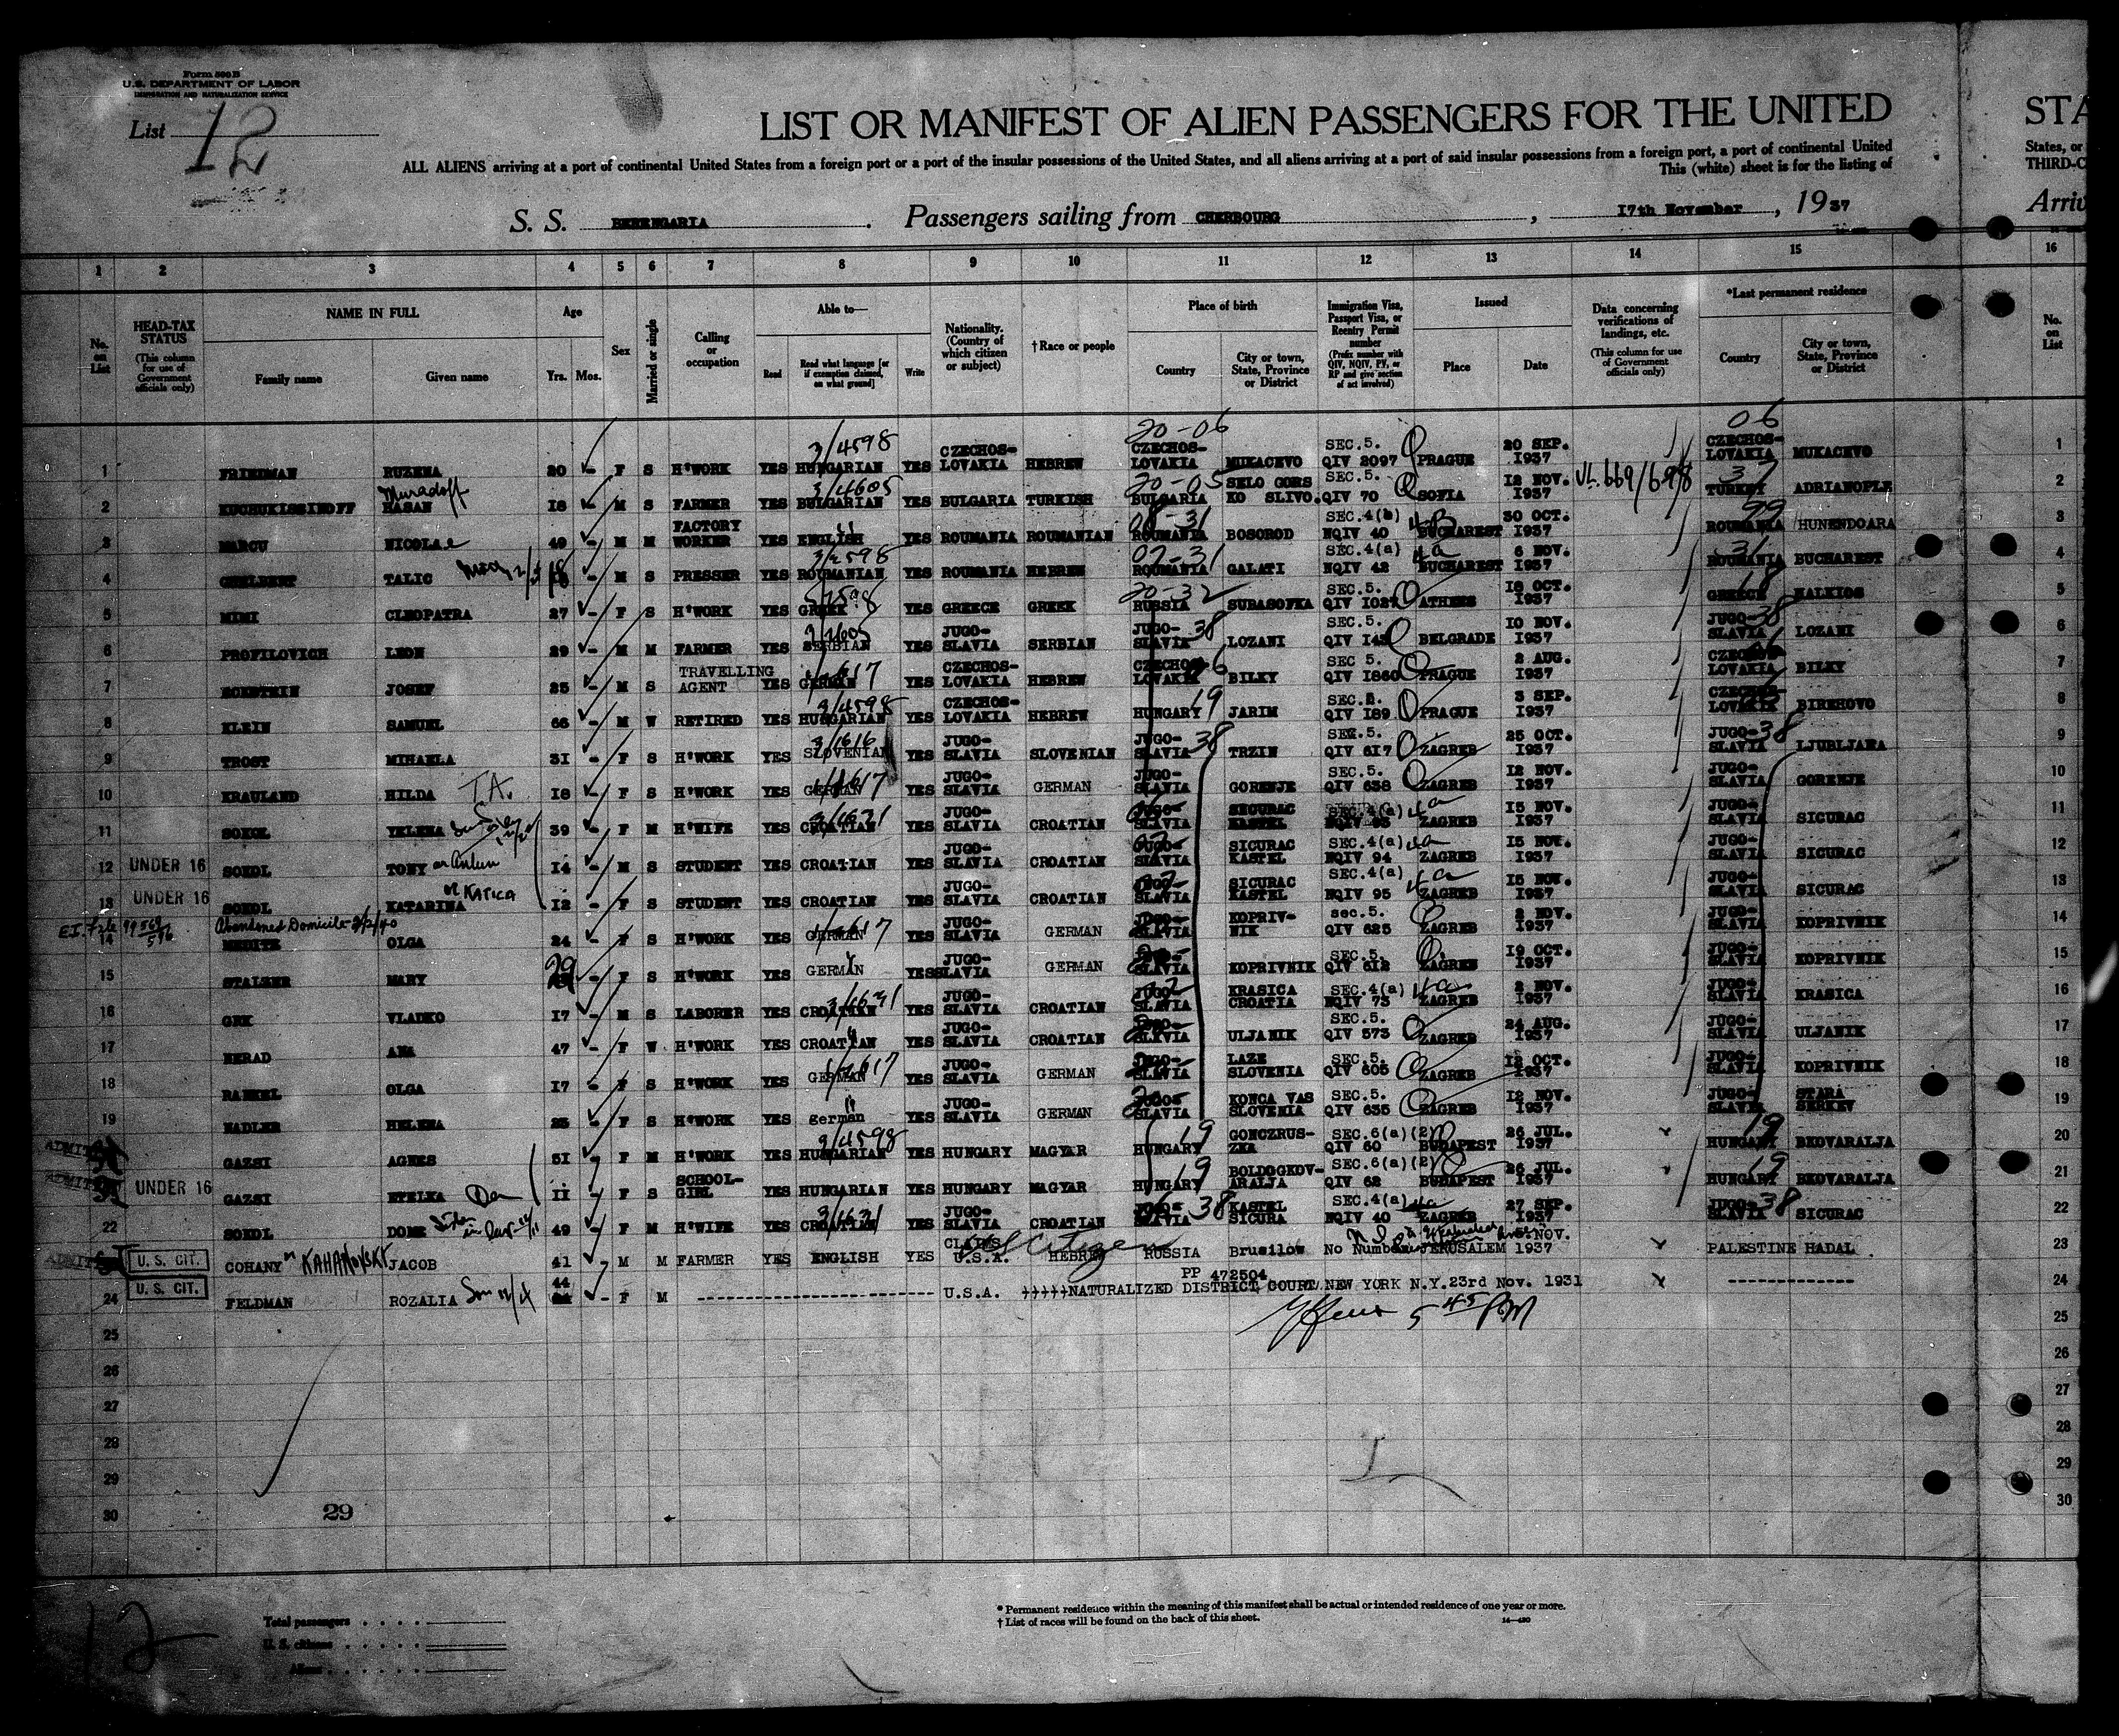 Form 500 B
U.S. DEPARTMENT OF LABOR
IMMIGRATION AND NATURALIZATION SERVICE
List 12
LIST OR MANIFEST OF ALIEN PASSENGERS FOR THE UNITED STA
ALL ALIENS arriving at a port of continental United States from a foreign port or a port of the insular possessions of the United States, and all aliens arriving at a port of said insular possessions from a foreign port, a port of continental United States, or
This (white) sheet is for the listing of THIRD-C
S. S. BERENGARIA. Passengers sailing from CHERBOURG, 17th November, 1937 Arriv
1 2 3 4 5 6 7 8 9 10 11 12 13 14 15 16
No. on List
HEAD-TAX STATUS (This column for use of Government officials only)
NAME IN FULL
Family name Given name
Age
Yrs. Mos.
Sex
Married or single
Calling or occupation
Able to—
Read Read what language [or if exemption claimed, on what ground] Write
Nationality. (Country of which citizen or subject)
†Race or people
Place of birth
Country City or town, State, Province or District
Immigration Visa, Passport Visa, or Reentry Permit number (Prefix number with QIV, NQIV, PV, or RP and give section of act involved)
Issued
Place Date
Data concerning verifications of landings, etc. (This column for use of Government officials only)
*Last permanent residence
Country City or town, State, Province or District
No. on List
1 FRIEDMAN RUZENA 20 F S H'WORK YES HUNGARIAN 3/4598 YES CZECHOS-LOVAKIA HEBREW 20-06 CZECHOS-LOVAKIA MUKACEVO SEC.5. QIV 2097 PRAGUE 20 SEP. 1937 06 CZECHOS-LOVAKIA MUKACEVO 1
2 KUCHUKISSINOFF Muradoff HASAN 18 M S FARMER YES BULGARIAN 3/4605 YES BULGARIA TURKISH 20-05 BULGARIA SELO GORS KO SLIVO. SEC.5. QIV 70 SOFIA 12 NOV. 1937 VL.669/698 37 TURKEY ADRIANOPLE 2
3 MARCU NICOLAe 49 M M FACTORY WORKER YES ENGLISH YES ROUMANIA ROUMANIAN 08-31 ROUMANIA BOSOROD SEC.4(b) NQIV 40 4B BUCHAREST 30 OCT. 1937 99 ROUMANIA HUNENDOARA 3
4 TALIC 18 M S PRESSER YES ROUMANIAN YES ROUMANIA HEBREW 07-31 ROUMANIA GALATI SEC.4(a) NQIV 42 4a BUCHAREST 6 NOV. 1937 31 ROUMANIA BUCHAREST 4
5 MIMI CLEOPATRA 27 F S H'WORK YES GREEK YES GREECE GREEK 20-32 RUSSIA SEC.5. QIV ATHENS 18 OCT. 1937 GREECE HALKIOS 5
6 PROFILOVICH LEON 29 M M FARMER YES SERBIAN YES JUGO-SLAVIA SERBIAN JUGO-SLAVIA 38 LOZANI SEC.5. QIV BELGRADE 10 NOV. 1937 JUGO-SLAVIA 38 LOZANI 6
7 JOSEF 25 M S TRAVELLING AGENT YES GERMAN YES CZECHOS-LOVAKIA HEBREW CZECHOS-LOVAKIA BILKY SEC 5. QIV 1860 PRAGUE 2 AUG. 1937 CZECHOS-LOVAKIA BILKY 7
8 KLEIN SAMUEL 66 M W RETIRED YES HUNGARIAN 3/4598 YES CZECHOS-LOVAKIA HEBREW HUNGARY 19 JARIM QIV 189 PRAGUE 3 SEP. 1937 CZECHOS-LOVAKIA BIREHOVO 8
9 TROST MIHAELA 31 F S H'WORK YES SLOVENIAN YES JUGO-SLAVIA SLOVENIAN JUGO-SLAVIA 38 TRZIN SEC.5. QIV 617 ZAGREB 25 OCT. 1937 JUGO-SLAVIA 38 LJUBLJANA 9
10 KRAULAND HILDA T.A. 18 F S H'WORK YES GERMAN YES JUGO-SLAVIA GERMAN JUGO-SLAVIA GORENJE SEC.5. QIV 638 ZAGREB 12 NOV. 1937 JUGO-SLAVIA GORENJE 10
11 SOKOL YELENA 39 F M H'WIFE YES CROATIAN YES JUGO-SLAVIA CROATIAN JUGO-SLAVIA SICURAC KASTEL SEC.4(a) 4a ZAGREB 15 NOV. 1937 JUGO-SLAVIA SICURAC 11
12 UNDER 16 SOKOL TONY or Antun 14 M S STUDENT YES CROATIAN YES JUGO-SLAVIA CROATIAN JUGO-SLAVIA SICURAC KASTEL SEC.4(a) NQIV 94 4a ZAGREB 15 NOV. 1937 JUGO-SLAVIA SICURAC 12
13 UNDER 16 SOKOL KATARINA or KATICA 12 F S STUDENT YES CROATIAN YES JUGO-SLAVIA CROATIAN SLAVIA SICURAC KASTEL SEC.4(a) NQIV 95 4a ZAGREB 15 NOV. 1937 JUGO-SLAVIA SICURAC 13
Abandoned Domicile
14 MEDITZ OLGA 24 F S H'WORK YES GERMAN YES JUGO-SLAVIA GERMAN JUGO-SLAVIA KOPRIV-NIK sec.5. QIV 625 ZAGREB 2 NOV. 1937 JUGO-SLAVIA KOPRIVNIK 14
15 STALZER MARY 29 F S H'WORK YES GERMAN YES JUGO-SLAVIA GERMAN SLAVIA KOPRIVNIK SEC.5. QIV 612 ZAGREB 19 OCT. 1937 JUGO-SLAVIA KOPRIVNIK 15
16 GRK VLADKO 17 M S LABORER YES CROATIAN YES JUGO-SLAVIA CROATIAN JUGO-SLAVIA KRASICA CROATIA SEC.4(a) NQIV 73 4a ZAGREB 2 NOV. 1937 JUGO-SLAVIA KRASICA 16
17 NERAD ANA 47 F W H'WORK YES CROATIAN YES JUGO-SLAVIA CROATIAN SLAVIA ULJANIK SEC.5. QIV 573 ZAGREB 24 AUG. 1937 JUGO-SLAVIA ULJANIK 17
18 OLGA 17 F S H'WORK YES GERMAN YES JUGO-SLAVIA GERMAN JUGO-SLAVIA LAZE SLOVENIA SEC.5. QIV 605 ZAGREB 12 OCT. 1937 JUGO-SLAVIA KOPRIVNIK 18
19 NADLER HELENA 25 F S H'WORK YES german YES JUGO-SLAVIA GERMAN SLAVIA KONCA VAS SLOVENIA SEC.5. QIV 635 ZAGREB 12 NOV. 1937 JUGO-SLAVIA STARA 19
ADMIT
20 GAZSI AGNES 51 F M H'WORK YES HUNGARIAN 3/4598 YES HUNGARY MAGYAR HUNGARY 19 GONCZRUS-ZKA SEC.6(a)(2) QIV 60 BUDAPEST 26 JUL. 1937 19 HUNGARY BKOVARALJA 20
ADMIT
21 UNDER 16 GAZSI ETELKA 11 F S SCHOOL-GIRL YES HUNGARIAN YES HUNGARY MAGYAR HUNGARY 19 BOLDOGKOV-ARALJA SEC.6(a)(2) QIV 62 BUDAPEST 26 JUL. 1937 19 HUNGARY BKOVARALJA 21
22 SOKOL DOME 49 F M H'WIFE YES CROATIAN YES JUGO-SLAVIA CROATIAN SLAVIA 38 KASTEL SICURA SEC.4(a) NQIV 40 4a ZAGREB 27 SEP. 1937 JUGO-SLAVIA 38 SICURAC 22
ADMIT
23 U. S. CIT. COHANY or KAHANOVSKY JACOB 41 M M FARMER YES ENGLISH YES CLAIMS U.S.A. US Citizen HEBREW RUSSIA Brusilow No Number JERUSALEM NOV. 1937 PALESTINE HADAL 23
24 U. S. CIT. FELDMAN ROZALIA 44 F M U.S.A. PP 472504 NATURALIZED DISTRICT COURT NEW YORK N.Y. 23rd Nov. 1931 24
5 45 PM
25 25
26 26
27 27
28 28
29 29
30 29 30
12
Total passengers
U. S. citizens
Aliens
* Permanent residence within the meaning of this manifest shall be actual or intended residence of one year or more.
† List of races will be found on the back of this sheet.
14—430